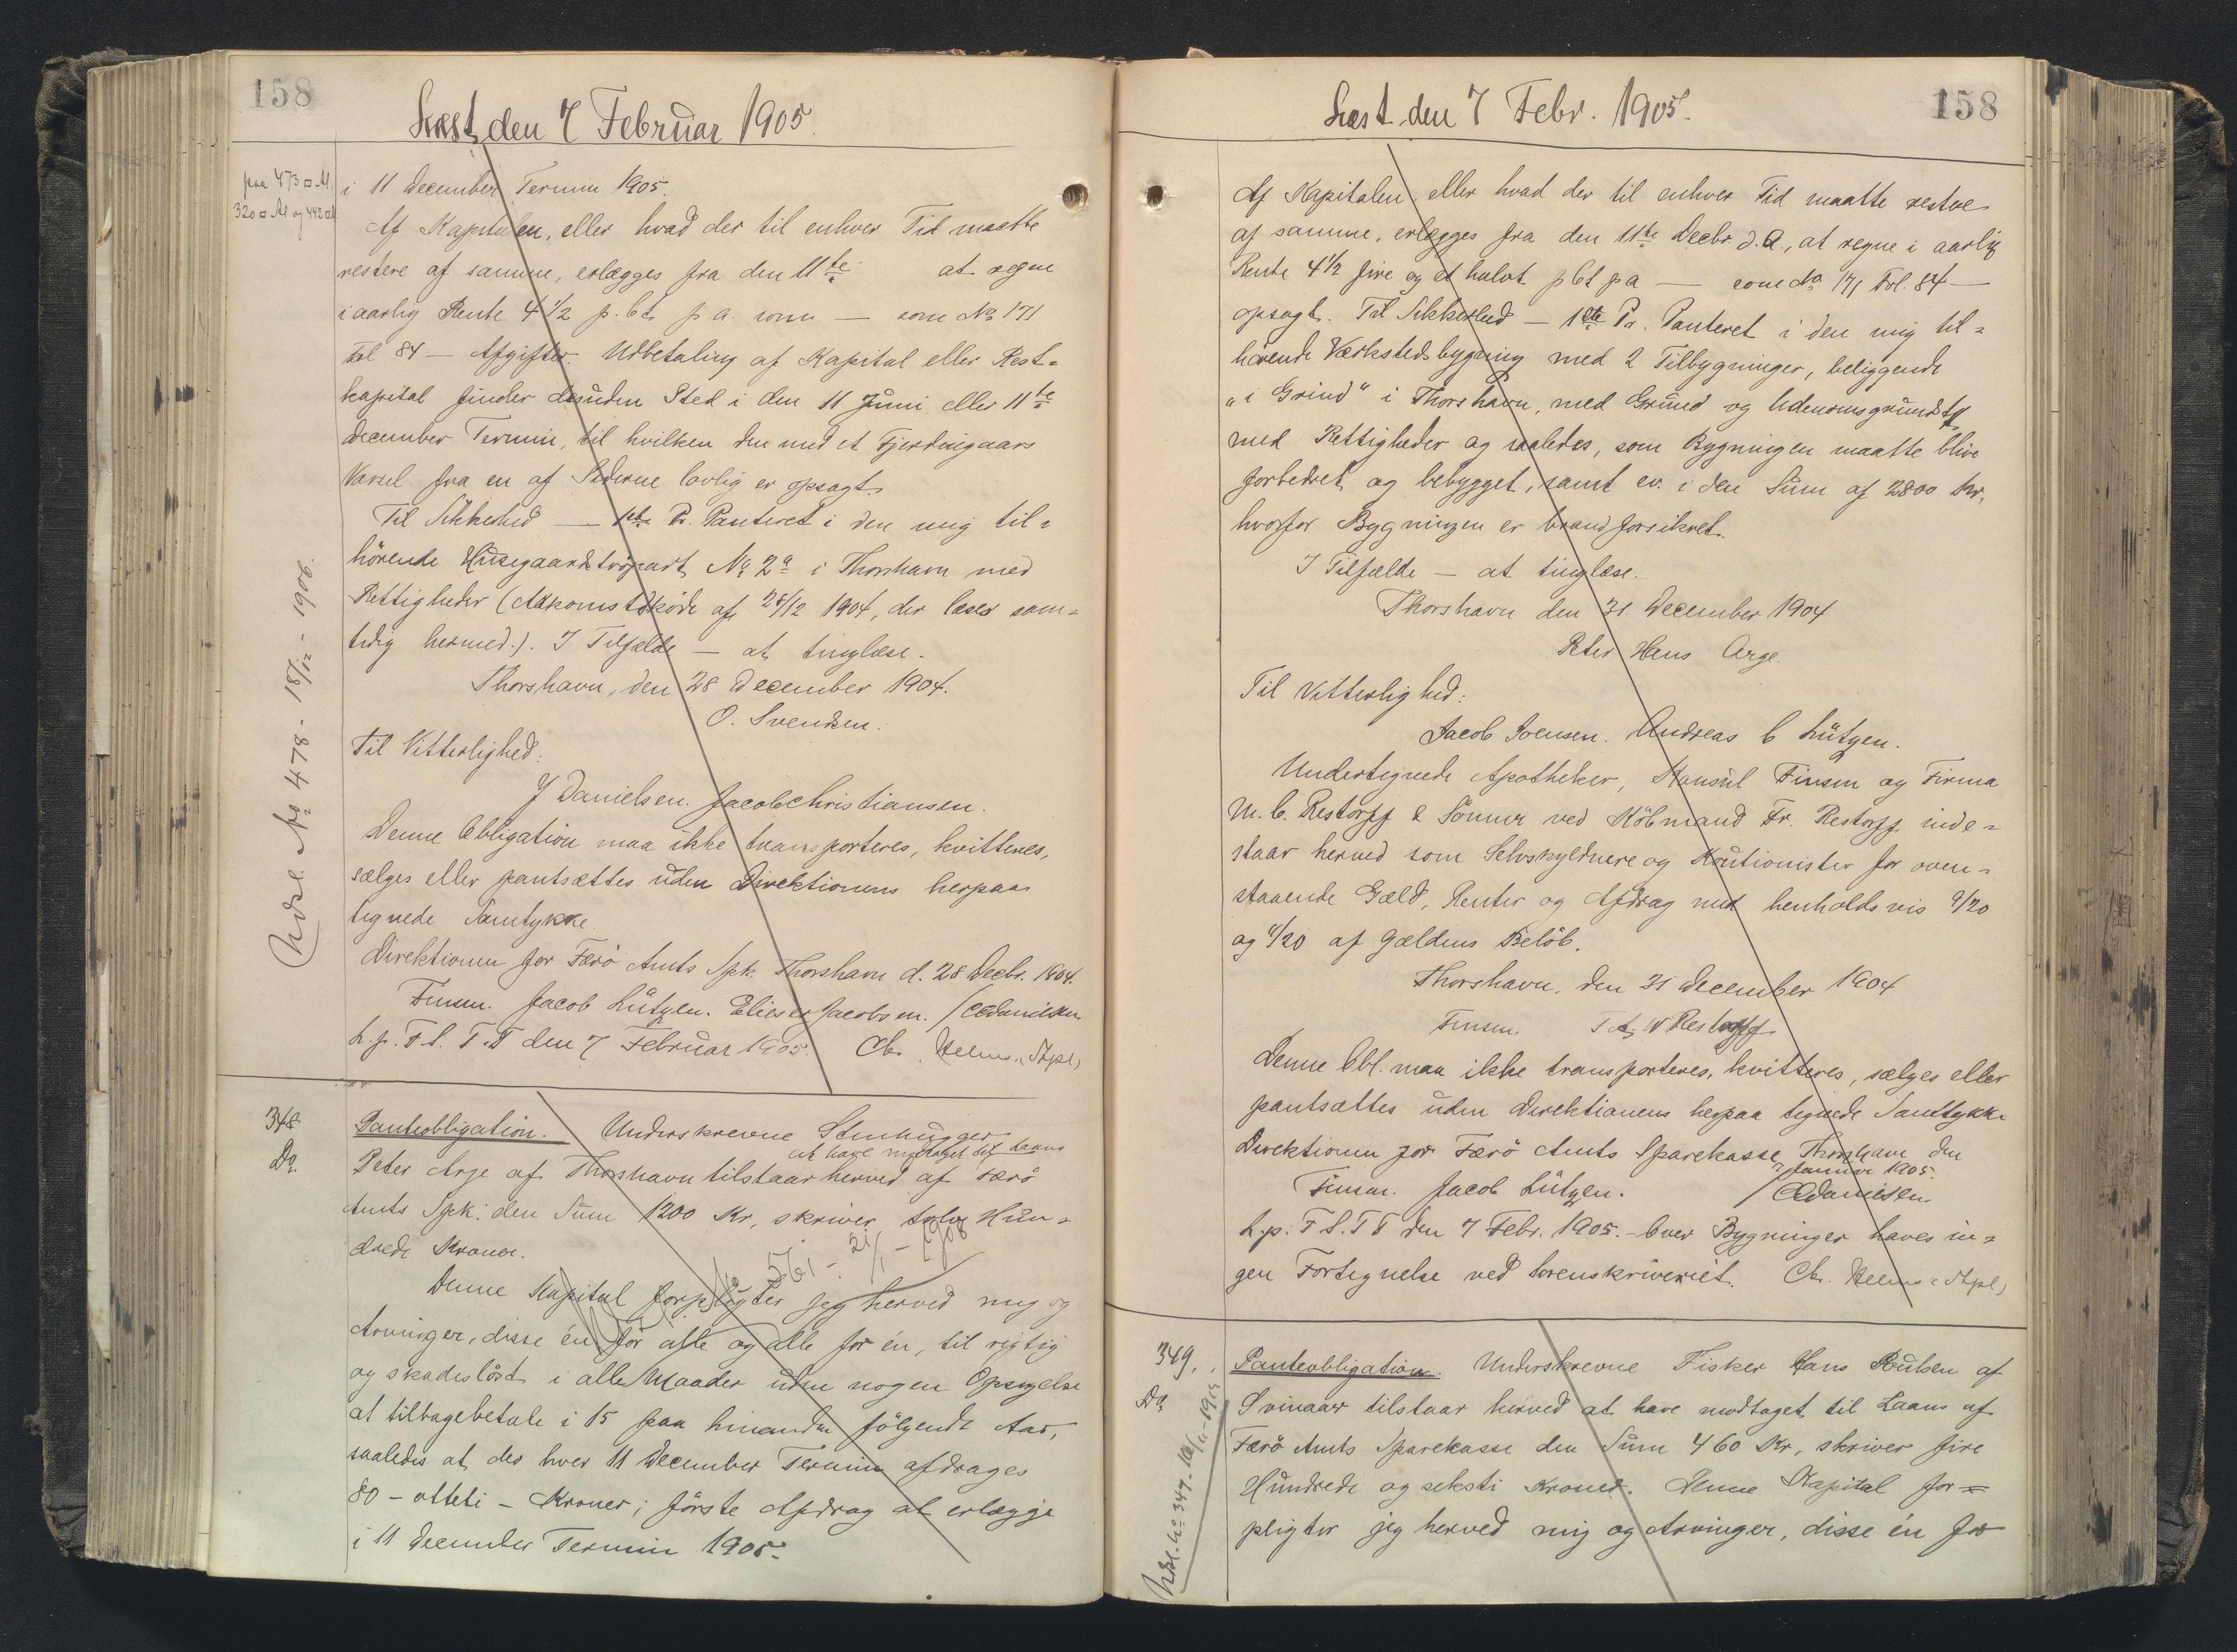 158
Læst den 7 Februar 1905.
paa 473 □ Al.
320 □ Al og 442 □ Al
i 11 December Termin 1905.
Af Kapitalen, eller hvad der til enhver Tid maatte
restere af samme, erlægges fra den 11te at regne
i aarlig Rente 4 1/2 p. Ct. p. a. som — som No 171
Fol 84 — Afgifter. Udbetaling af Kapital eller Rest=
kapital finder desuden Sted i den 11 Juni eller 11te
December Termin, til hvilken den med et Fjerdingaars
Varsel fra en af Siderne lovlig er opsagt.
Til Sikkerhed — 1ste Pr. Panteret i den mig til=
hörende Husegaardstvöpart No 2a i Thorshavn med
Rettigheder (Adkomstskøde af 28/12 1904, der læses sam=
tidig hermed.). I Tilfælde — at tinglæse.
Thorshavn, den 28 December 1904.
O. Svendsen.
Til Vitterlighed:
J Danielsen. Jacob Christiansen.
Denne Obligation maa ikke transporteres, kvitteres,
sælges eller pantsættes uden Direktionens herpaa
tegnede Samtykke.
Direktionen for Færö Amts Spk. Thorshavn d. 28 Decbr. 1904.
Finsen. Jacob Lützen. Elieser Jacobsen. / CDanielsen
L. p. F. S. T. T den 7 Februar 1905. Chr. Helms (Stpl)
Udsl. No 478. 18/12 - 1906.
348
Do.
Panteobligation. Underskrevne Stenhugger
at have modtaget til Laans
Peter Arge af Thorshavn tilstaar herved af Færö
Amts Spk: den Sum 1200 Kr, skriver tolv Hun=
drede Kroner.
561 - 21/1 - 1908
Denne Kapital forpligter jeg herved mig og
Arvinger, disse én for alle og alle for én, til rigtig
og skadeslöst i alle Maader uden nogen Opsigelse
at tilbagebetale i 15 paa hinanden fölgende Aar,
saaledes at der hver 11 December Termin afdrages
80 - otteti - Kroner; förste Afdrag at erlægge
i 11 December Termin 1905.
158
Læst den 7 Febr. 1905.
Af Kapitalen, eller hvad der til enhver Tid maatte restere
af samme, erlægges fra den 11te Decbr. d. A., at regne i aarlig
Rente 4 1/2 fire og et halvt p Ct p a — som No 171 Fol. 84 —
opsagt. Til Sikkerhed — 1ste Pr. Panteret i den mig til=
hörende Værkstedsbygning med 2 Tilbygninger, beliggende
"i Grind" i Thorshavn, med Grund og Udenomsgrund
med Rettigheder og saaledes, som Bygningen maatte blive
forbedret og bebygget, samt ev. i den Sum af 2800 Kr,
hvorfor Bygningen er brandforsikret.
I Tilfælde — at tinglæse.
Thorshavn den 31 December 1904
Peter Hans Arge.
Til Vitterlighed:
Jacob Joensen. Andreas C Lützen.
Undertegnede Apotheker, Konsul Finsen og Firma
M. C. Restorff & Sönner ved Köbmand Fr. Restorff inde=
staar herved som Selvskyldnere og Kautionister for oven=
staaende Gæld, Renter og Afdrag med henholdsvis 9/20
og 11/20 af Gældens Belöb.
Thorshavn, den 31 December 1904
Finsen. Restorff
Denne Obl. maa ikke transporteres, kvitteres, sælges eller
pantsættes uden Direktionens herpaa tegnede Samtykke
Direktionen for Færö Amts Sparekasse, Thorshavn den
7 Januar 1905.
Finsen. Jacob Lützen. / CDanielsen
L. p. F. S. T T den 7 Febr. 1905. - Over Bygninger haves in=
gen Fortegnelse ved Sorenskriveriet. Chr. Helms (Stpl)
349.
Do
Udsl. No 347. 16/11 1915.
Panteobligation. Underskrevne Fisker Hans Poulsen af
Svinaar tilstaar herved at have modtaget til Laans af
Færö Amts Sparekasse den Sum 460 Kr, skriver fire
Hundrede og seksti Kroner. Denne Kapital for=
pligter jeg herved mig og Arvinger, disse én for